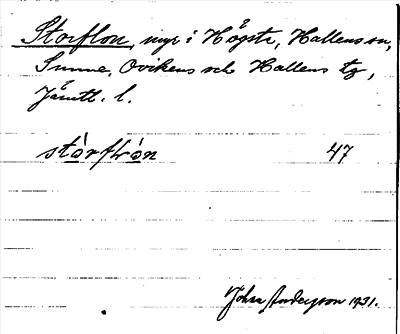 Storflon, myr i Högste, Hallens sn,
Sunne, Ovikens och Hallens tg,
Jämtl. l.
stòrflròn 47
John Andersson 1931.